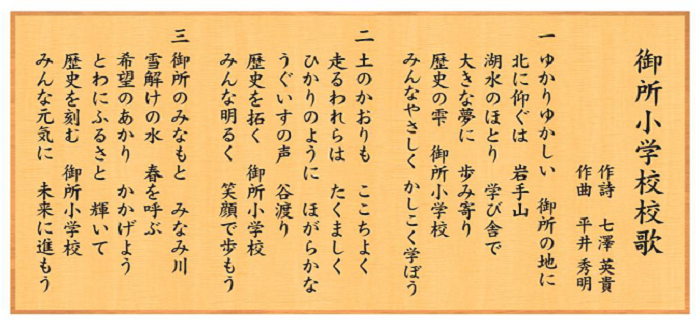 御所小学校校歌
作詩　七澤 英貴
作曲　平井 秀明
一　ゆかりゆかしい　御所の地に
北に仰ぐは　岩手山
湖水のほとり　学び舎で
大きな夢に　歩み寄り
歴史の雫　御所小学校
みんなやさしく かしこく学ぼう
二　土のかおりも　ここちよく
走るわれらは　たくましく
ひかりのように　ほがらかな
うぐいすの声　谷渡り
歴史を拓く　御所小学校
みんな明るく　笑顔で歩もう
三　御所のみなもと　みなみ川
雪解けの水　春を呼ぶ
希望のあかり　かかげよう
とわにふるさと　輝いて
歴史を刻む　御所小学校
みんな元気に　未来に進もう